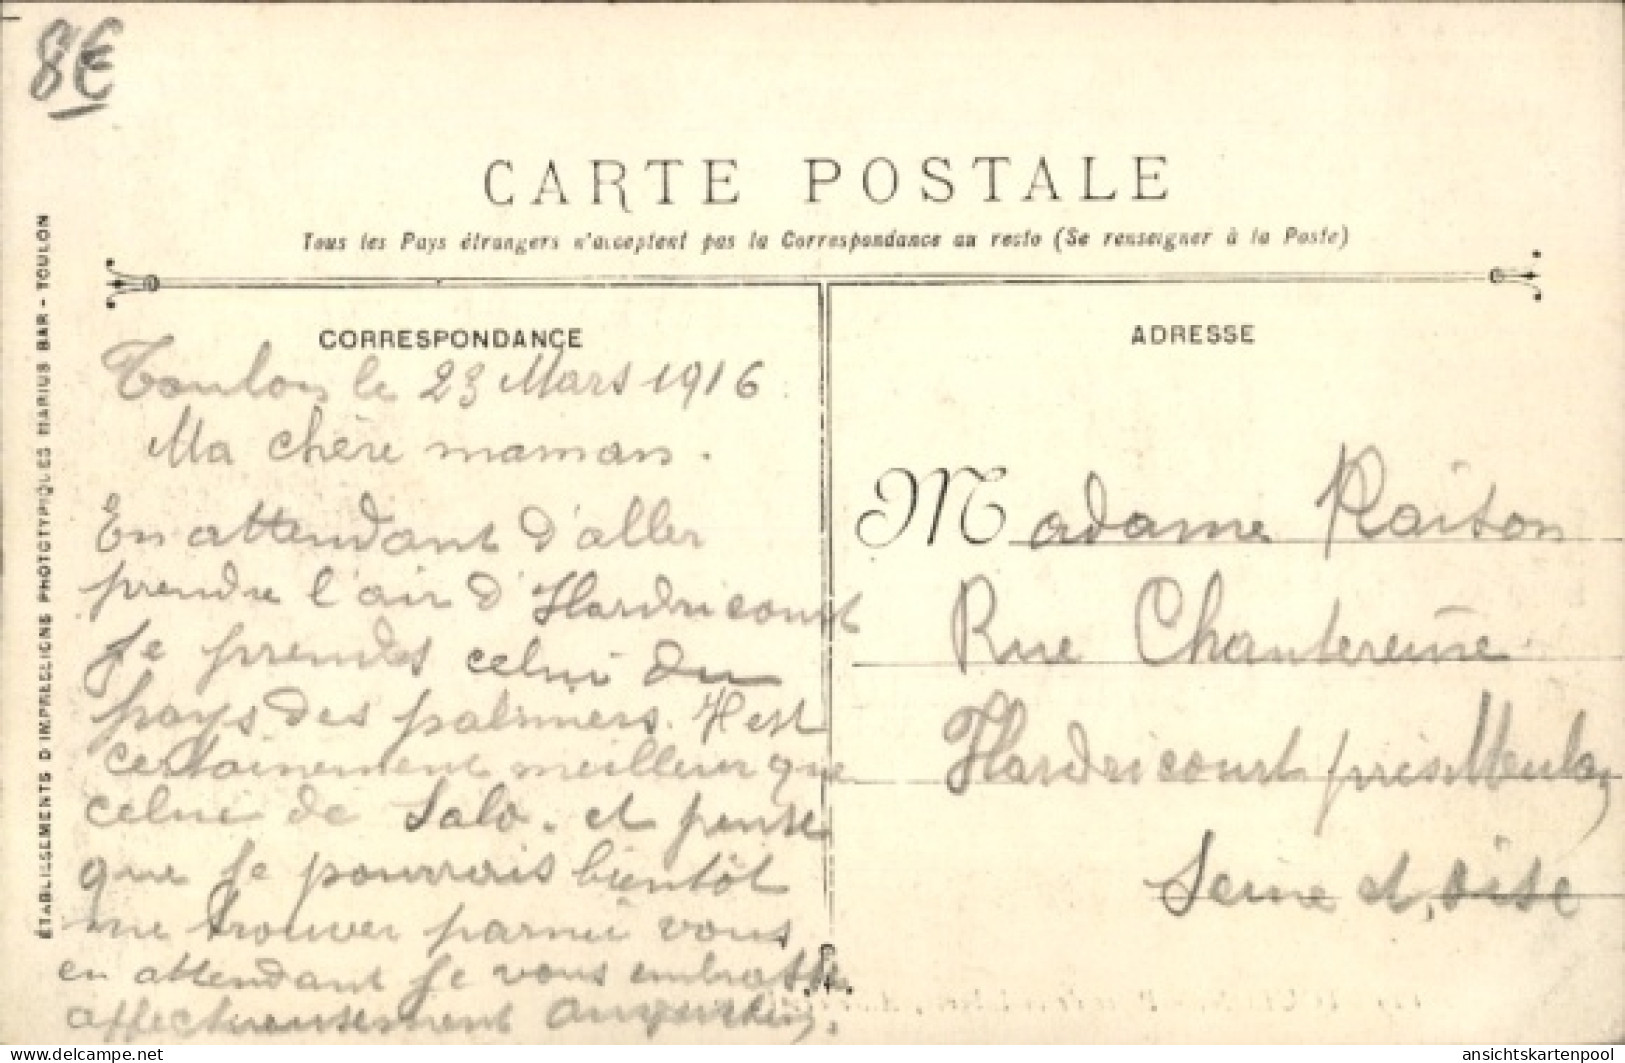 8€
CARTE POSTALE
Tous les Pays étrangers n'acceptent pas la Correspondance au recto (Se renseigner à la Poste)
ÉTABLISSEMENTS D'IMPRESSIONS PHOTOTYPIQUES MARIUS BAR - TOULON
CORRESPONDANCE
Toulon le 23 Mars 1916
Ma chère maman.
En attendant d'aller
prendre l'air d'Hardricourt
Je prends celui du
pays des palmiers. Il est
certainement meilleur que
celui de Salo. et pense
que je pourrais bientôt
me trouver parmi vous
en attendant je vous embrasse
affectueusement
ADRESSE
Madame Raison
Rue Chantereine
Hardricourt près Meulan
Seine et, oise
www.delcampe.net
ansichtskartenpool